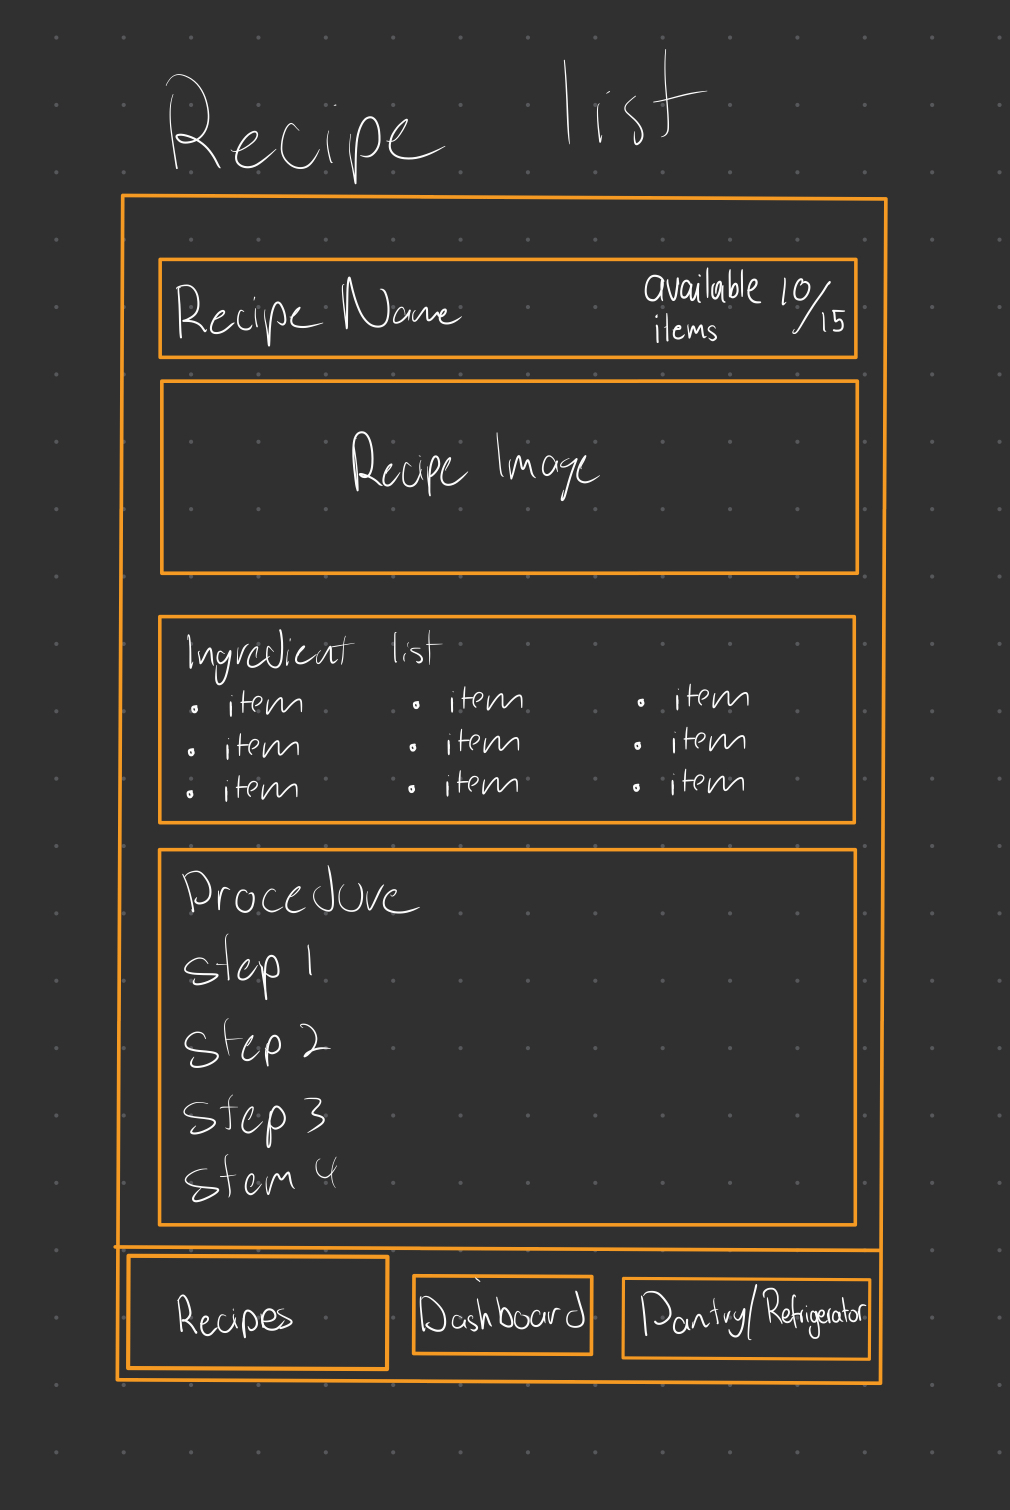 Recipe list
Recipe Name
available 10/15
items
Recipe Image
Ingredient list
• item • item • item
• item • item • item
• item • item • item
Procedure
Step 1
Step 2
Step 3
Stem 4
Recipes
Dashboard
Pantry/Refrigerator